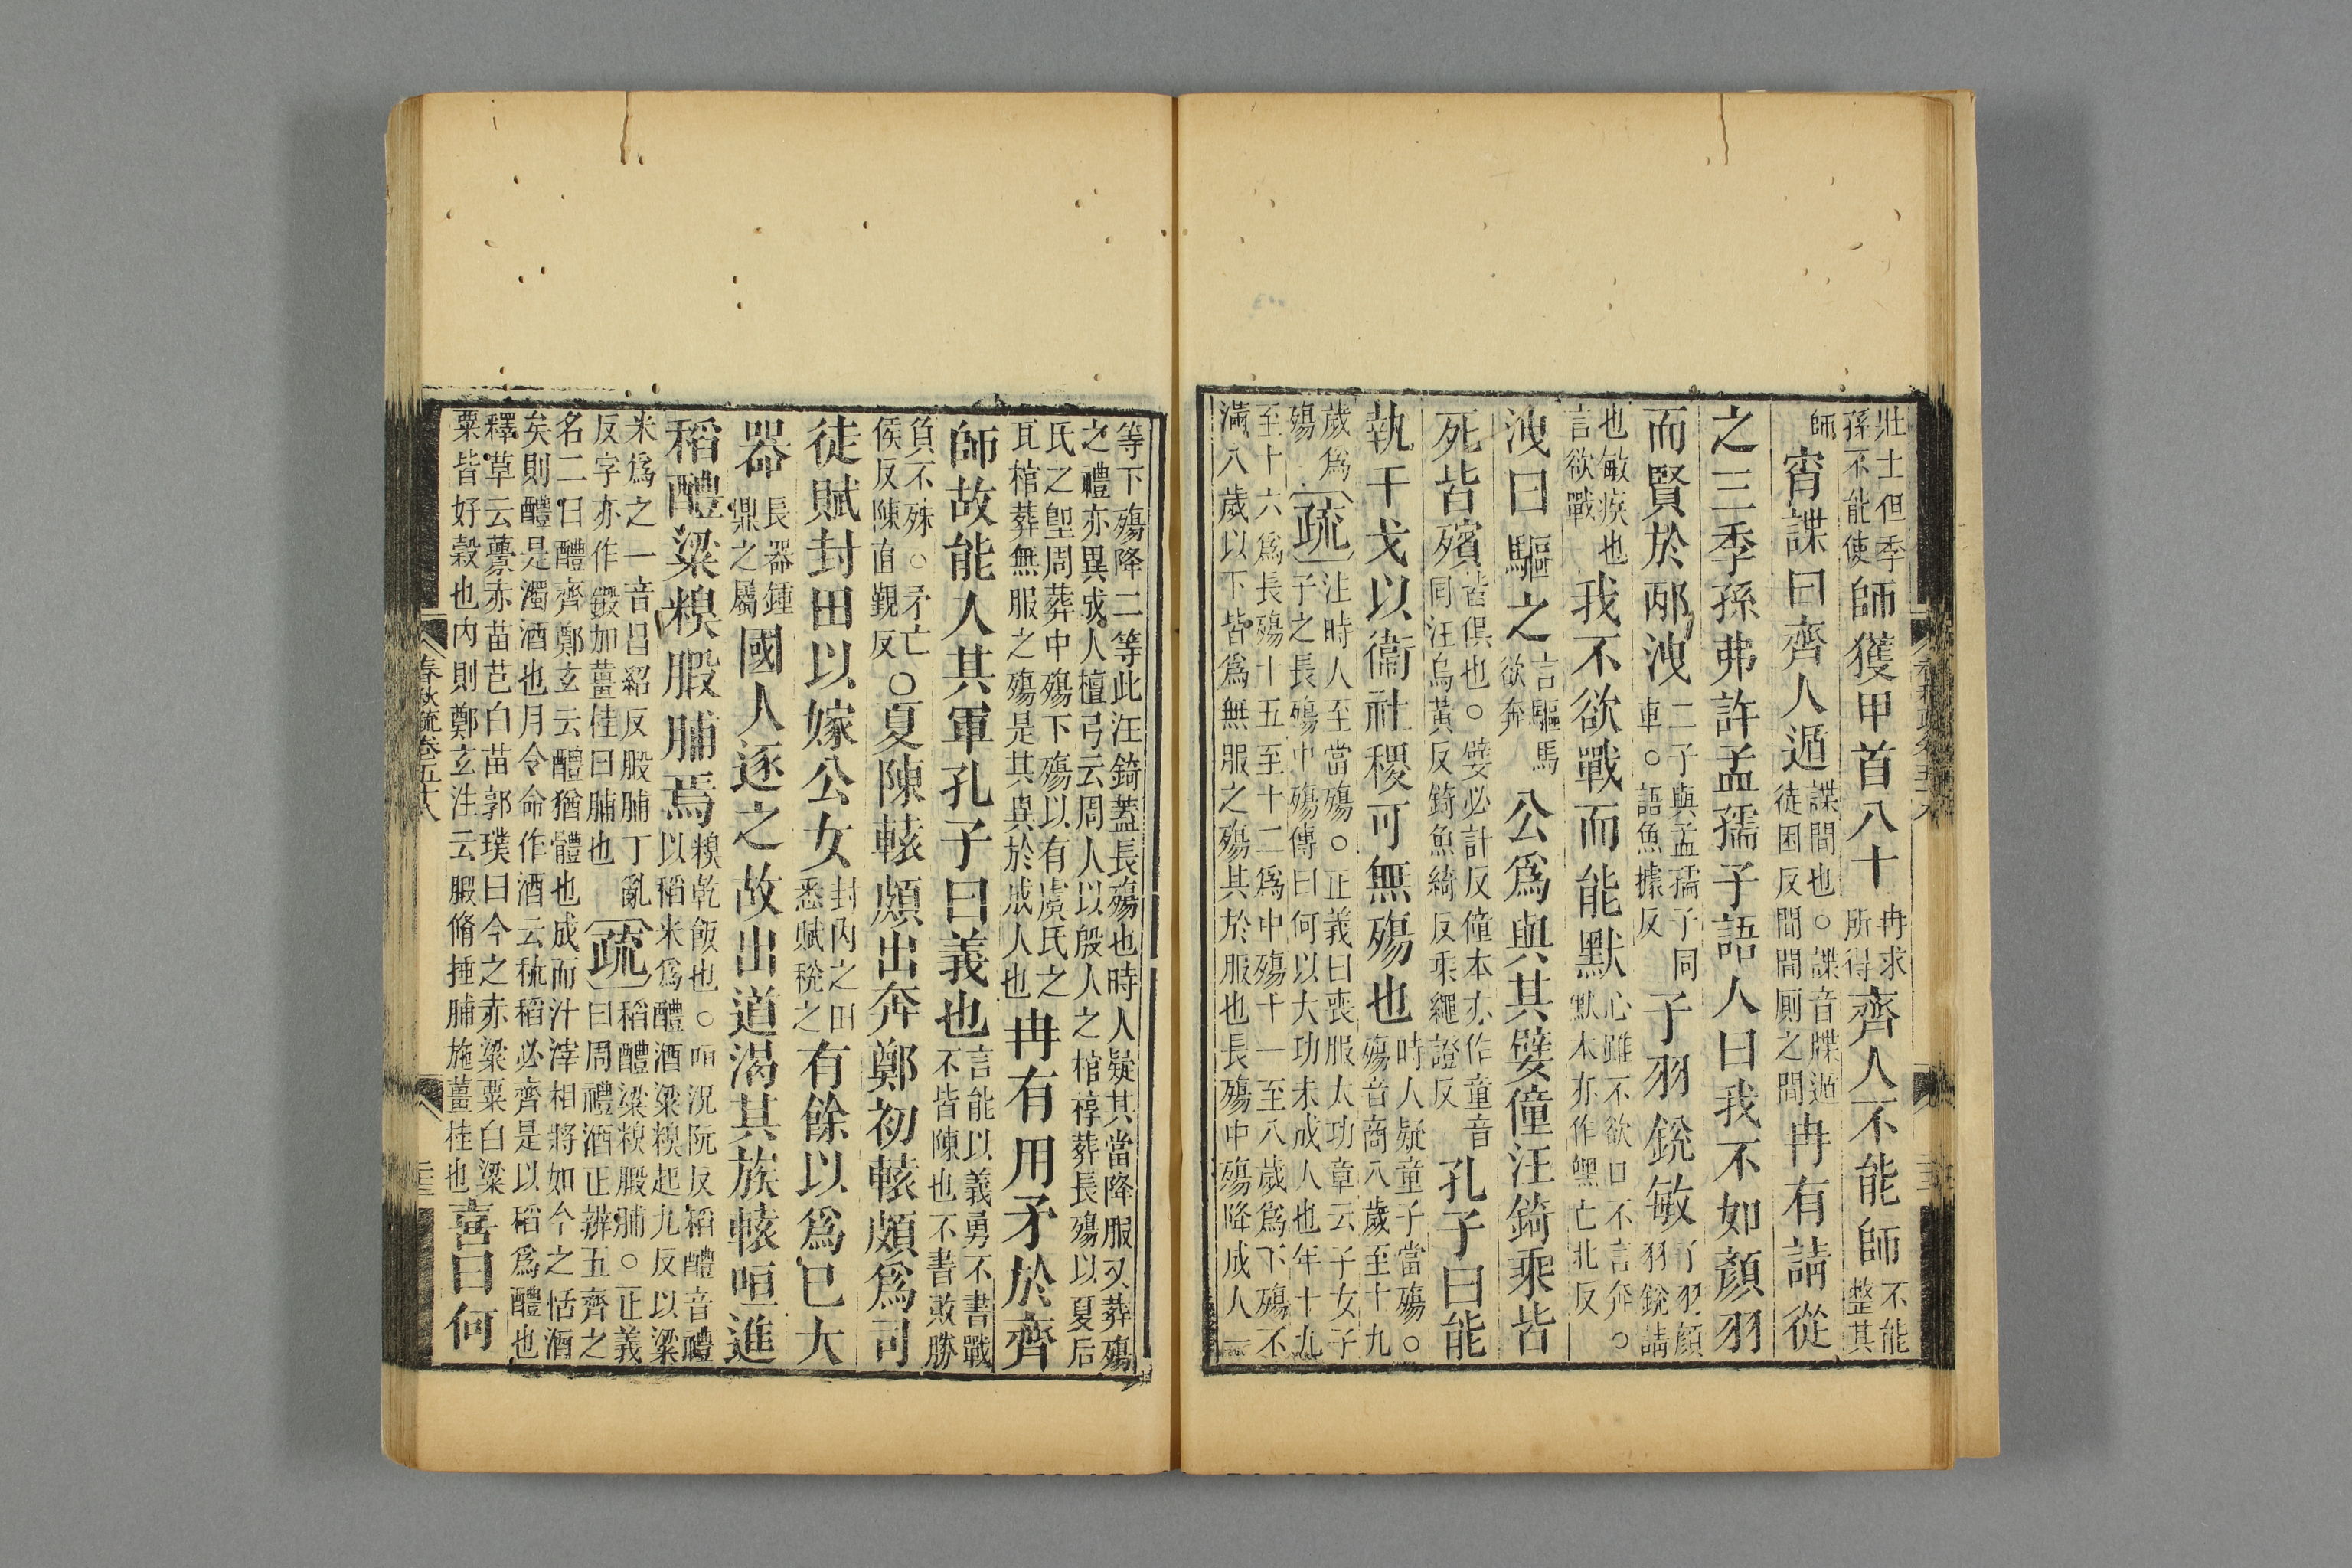 壯士但季孫不能使師獲甲首八十冉求所得齊人不能師不能整其
師宵諜曰齊人遁諜間也○諜音牒遁徒困反間間厠之間冉有請從
之三季孫弗許孟孺子語人曰我不如顏羽
而賢於邴洩二子與孟孺子同車○語魚據反子羽銳敏子羽顏羽銳請
也敏疾也言欲戰我不欲戰而能默心雖不欲口不言奔○默本亦作嘿亡北反
洩曰驅之言驅馬欲奔公爲與其嬖僮汪錡乘皆
死皆殯皆俱也○嬖必計反僮本亦作童音同汪烏黃反錡魚綺反乘繩證反孔子曰能
執干戈以衞社稷可無殤也時人疑童子當殤○殤音商八歲至十九
歲爲殤疏注時人至當殤○正義曰喪服大功章云子女子子之長殤中殤傳曰何以大功未成人也年十九
至十六爲長殤十五至十二爲中殤十一至八歲爲下殤不滿八歲以下皆爲無服之殤其於服也長殤中殤降成人一
等下殤降二等此汪錡蓋長殤也時人疑其當降服又葬殤之禮亦異成人檀弓云周人以殷人之棺椁葬長殤以夏后
氏之堲周葬中殤下殤以有虞氏之瓦棺葬無服之殤是其異於成人也冉有用矛於齊
師故能入其軍孔子曰義也言能以義勇不書戰不皆陳也不書敗勝
負不殊○矛亡侯反陳直覲反○夏陳轅頗出奔鄭初轅頗爲司
徒賦封田以嫁公女封內之田悉賦稅之有餘以爲己大
器長器鍾鼎之屬國人逐之故出道渴其族轅咺進
稻醴粱糗腶脯焉糗乾飯也○咺況阮反稻醴音禮以稻米爲醴酒粱糗起九反以粱
米爲之一音昌紹反腶脯丁亂反字亦作鍛加薑桂曰脯也疏稻醴粱糗腶脯○正義曰周禮酒正辨五齊之
名二曰醴齊鄭玄云醴猶體也成而汁滓相將如今之恬酒矣則醴是濁酒也月令命作酒云秫稻必齊是以稻爲醴也
釋草云虋赤苗芑白苗郭璞曰今之赤粱粟白粱粟皆好穀也內則鄭玄注云腶脩捶脯施薑桂也喜曰何
春秋疏卷五十八